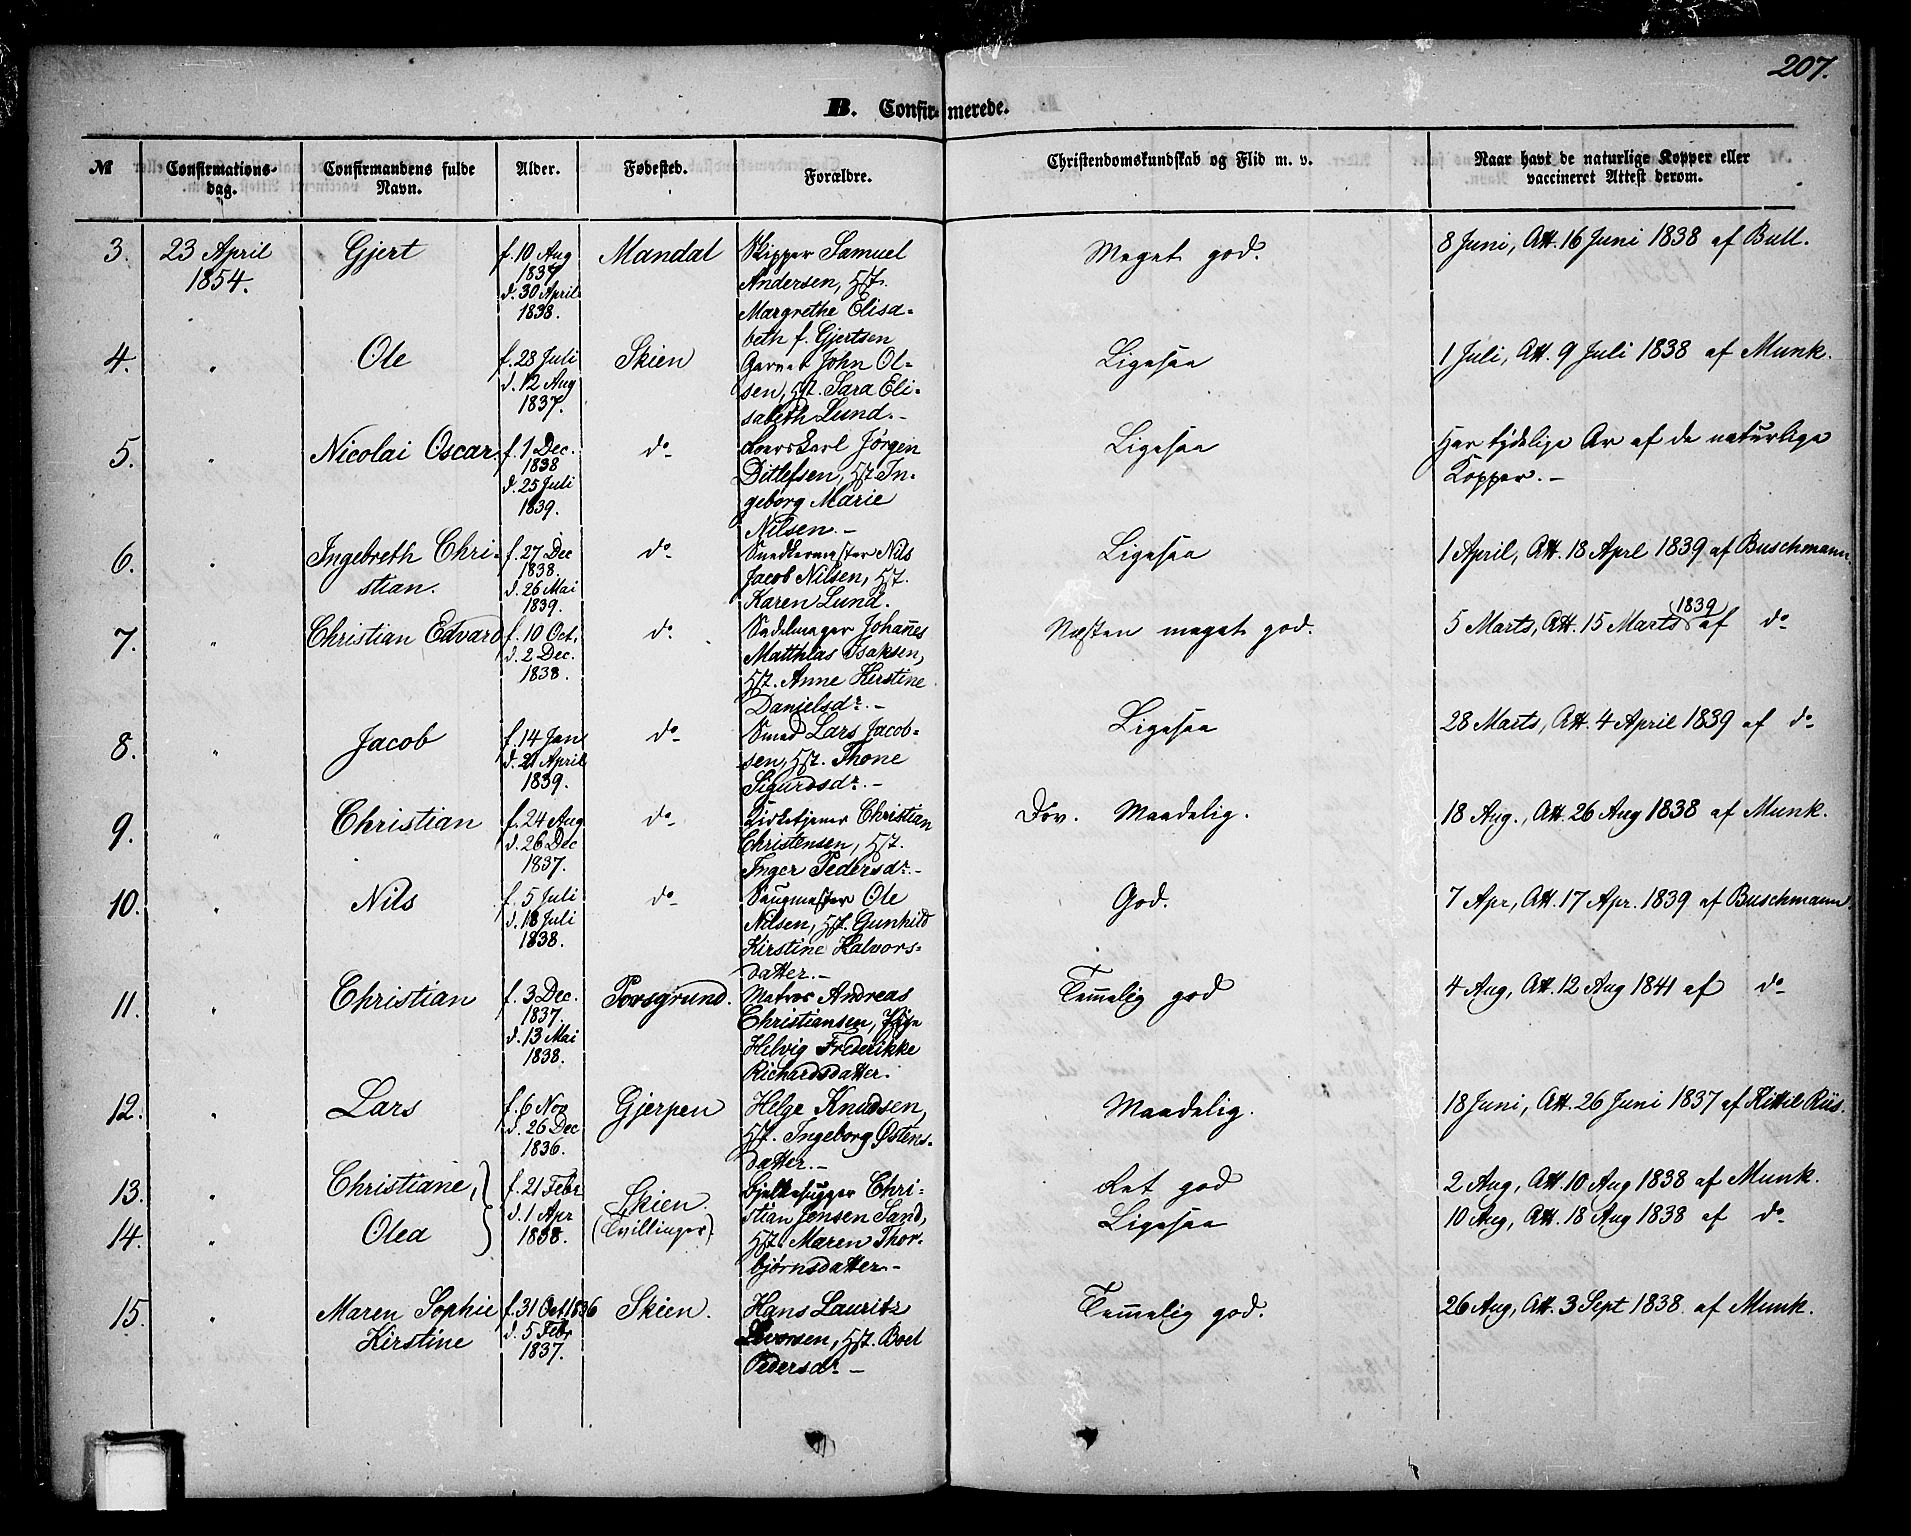 207.
B. Confirmerede.
№ Confirmations- dag. Confirmandens fulde Navn. Alder. Fødested. Forældre. Christendomskundskab og Flid m. v. Naar havt de naturlige Kopper eller vaccineret Attest derom.
3. 23 April Gjert f. 10 Aug Mandal Skipper Samuel Meget god. 8 Juni, Att. 16 Juni 1838 af Bull.
1854. 1837 Andersen, Hst.
d. 30 April Margrethe Elisa-
1838. beth f. Gjertsen
4. " Ole f. 28 Juli Skien Garver John Ol- Ligesaa 1 Juli, Att. 9 Juli 1838 af Munk.
d. 12 Aug sen, Hst. Sara Eli-
1837. sabeth Lund.-
5. " Nicolai Oscar. f. 1 Dec. do- Jørgen Ligesaa Har tydelige Ar af de naturlige
1838 Ditlefsen, Hst In- Kopper.-
d. 25 Juli geborg Marie
1839. Nilsen.-
6. " Ingebreth Chri- f. 27 Dec do- Snedkermester Nils Ligesaa 1 April, Att. 18 Aprl 1839 af Buschmann.
stian. 1838. Jacob Nilsen, Hst.
d. 26 Mai Karen Lund.
1839.
7. " Christian Edvard f. 10 Oct. do- Sadelmager Johañes Næsten meget god. 5 Marts, Att. 15 Marts 1839 af do-
d. 2 Dec. Matthias Isaksen,
1838. Hst. Anne Kirstine
Danielsdr.-
8. " Jacob f. 14 Jan do- Smed Lars Jacob- Ligesaa 28 Marts, Att. 4 April 1839 af do-
d. 21 April sen, Hst. Thone
1839. Sigurdsdr.-
9. " Christian f. 24 Aug do- Kirketjener Christian Døv. Maadelig. 18 Aug., Att. 26 Aug 1838 af Munk.
d. 26 Dec Christensen, Hst.
1837. Inger Pedersdr.-
10. " Nils f. 5 Juli do- Saugmester Ole God. 7 Apr, Att. 17 Apr. 1839 af Buschmann.
d. 18 Juli Nilsen, Hst. Gunhild
1838. Kirstine Halvors-
datter.-
11. " Christian f. 3 Dec. Porsgrund. Matros Andreas Temelig god 4 Aug, Att. 12 Aug 1841 af do-
1837. Christiansen, Pige
d. 13 Mai Helvig Frederikke
1838. Richardsdatter.
12. " Lars f. 6 Nov Gjerpen Helge Knudsen, Maadelig. 18 Juni, Att. 26 Juni 1837 af Kittil Riis.
d. 26 Dec Hst. Ingeborg Østens-
1836. datter.-
13. " Christiane, f. 21 Febr Skien. Bjelkehugger Chri- Ret god 2 Aug, Att. 10 Aug 1838 af Munk.
d. 1 Apr (Tvillinger) stian Jensen Sand, Ligesaa 10 Aug, Att. 18 Aug 1838 af do-
14. " Olea 1838. Hst. Maren Thor-
bjørnsdatter.-
15. " Maren Sophie f. 31 Oct. 1836 Skien. Hans Lauritz Temelig god. 26 Aug, Att. 3 Sept 1838. af Munk.
Kirstine d. 5 Febr Hst. Boel
1837. Pedersdr.-